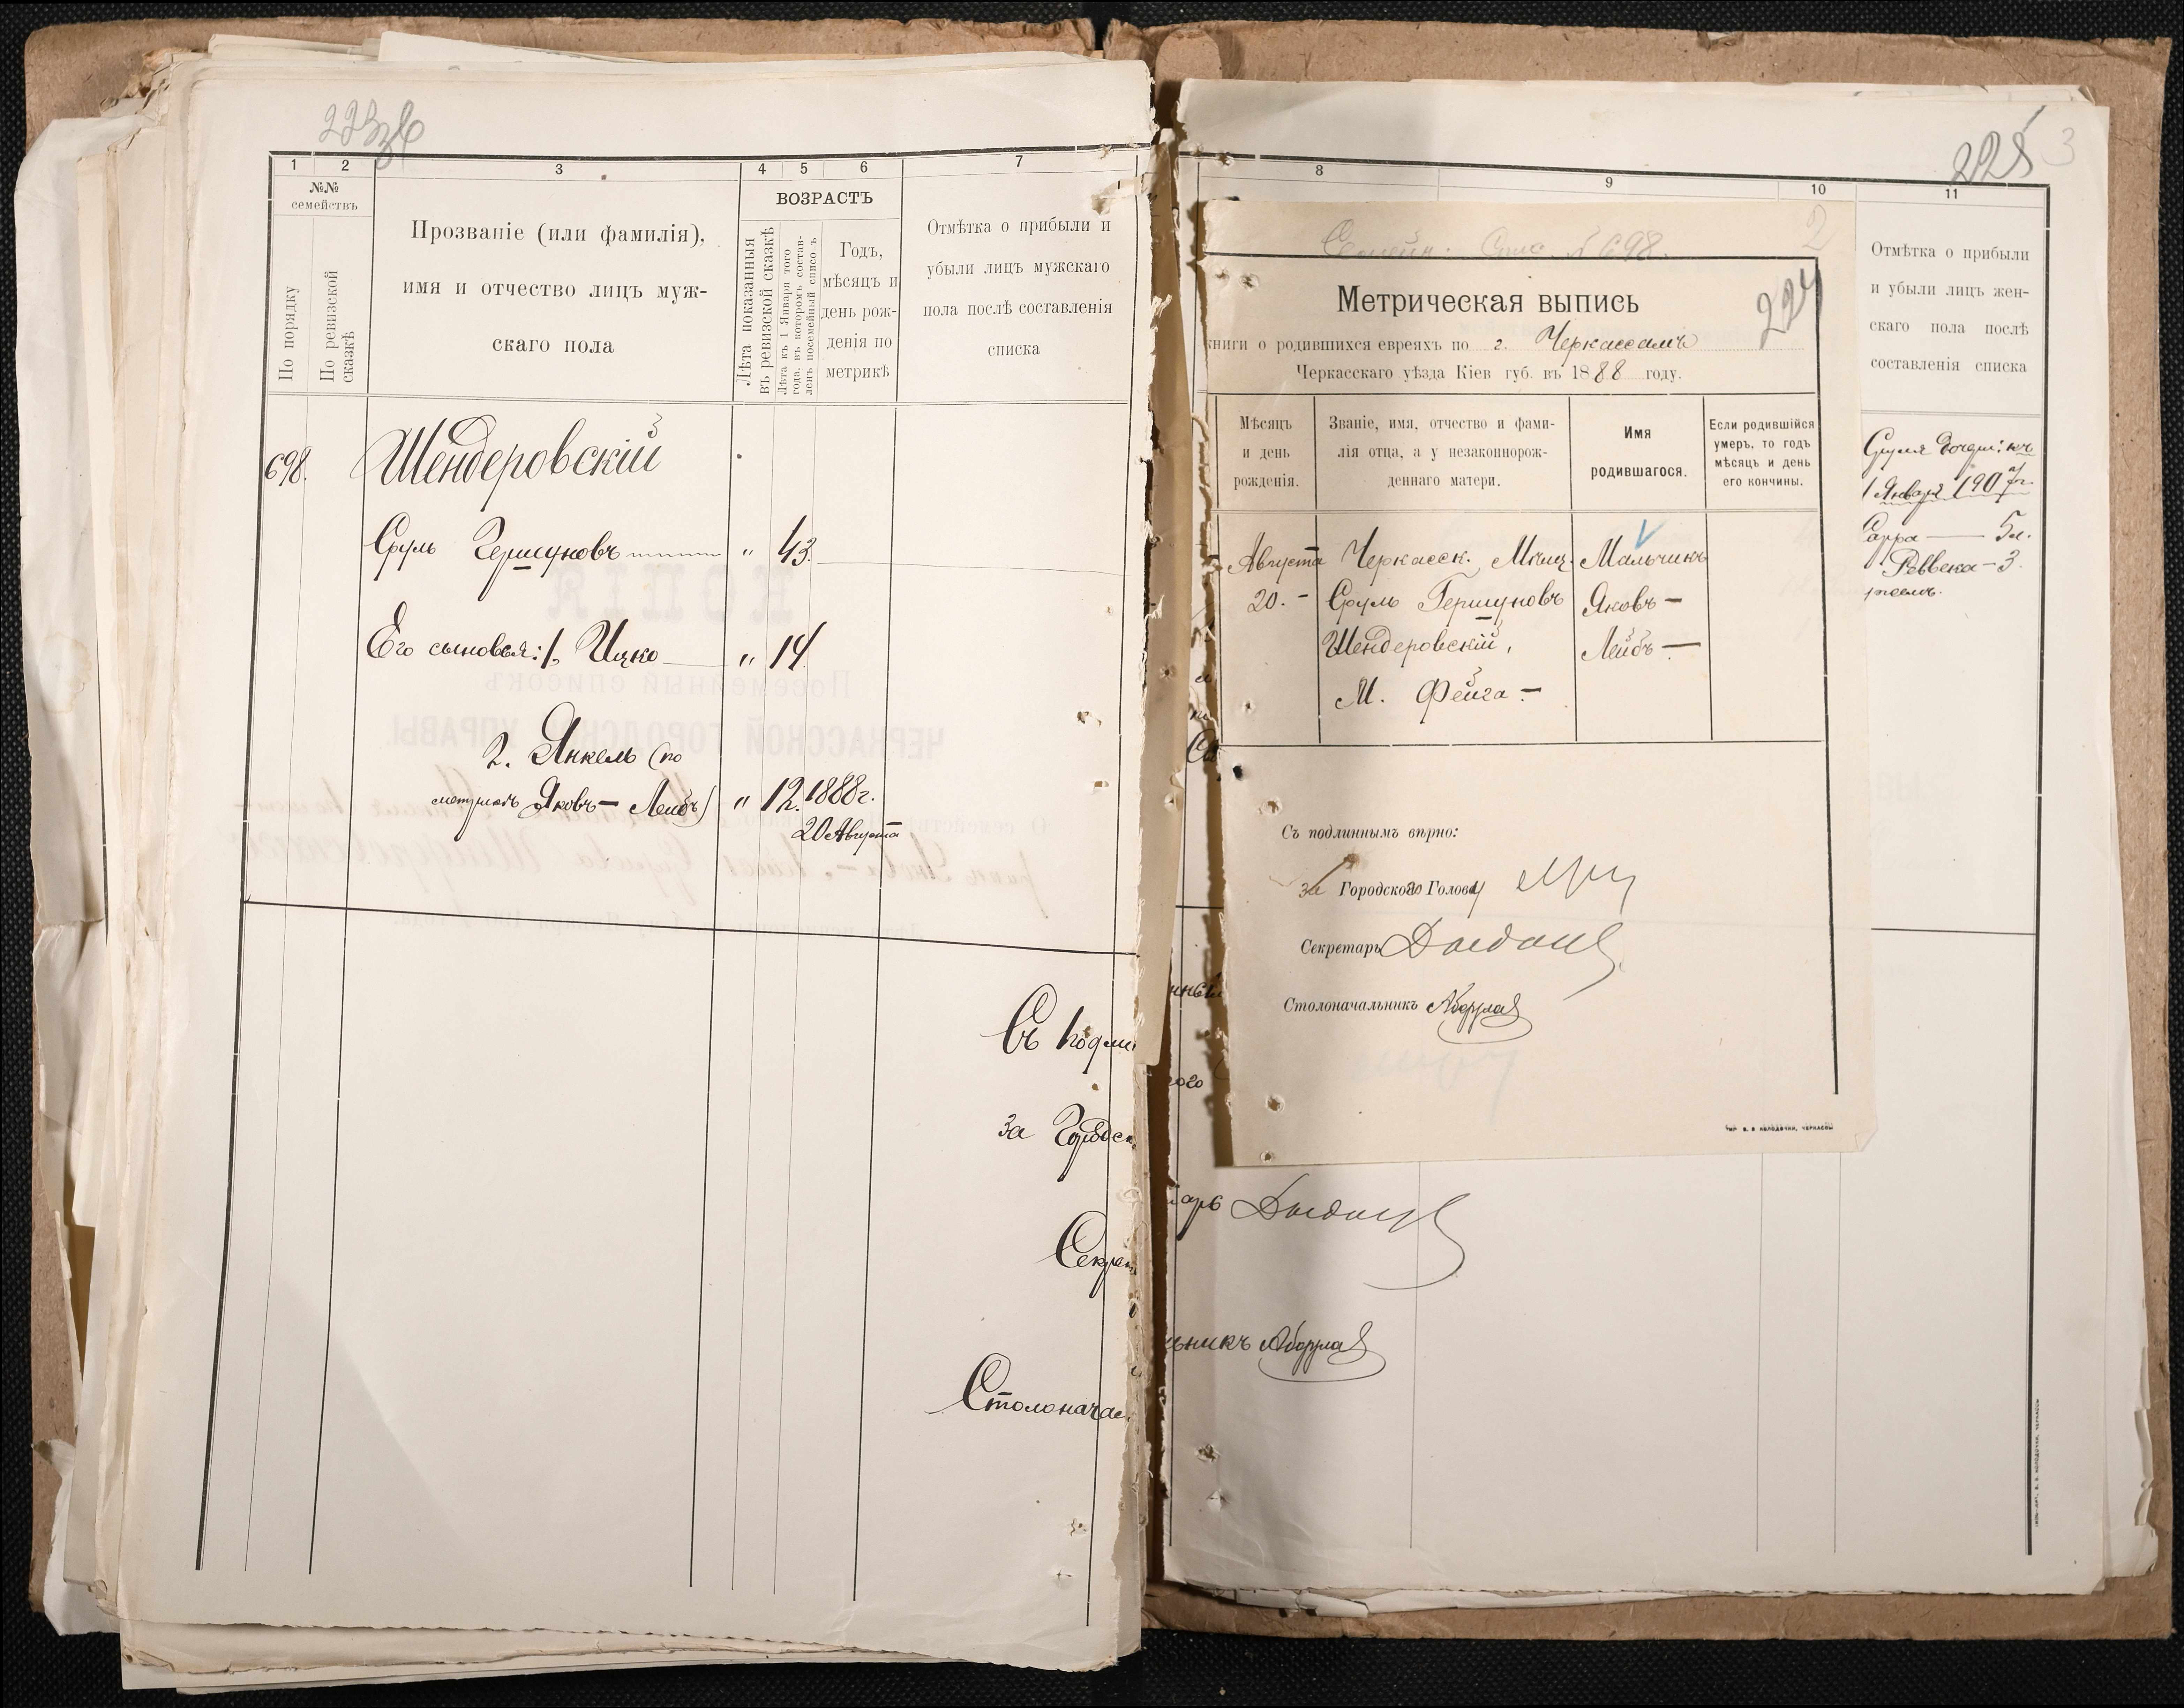 1 2 3 4 5 6 7
№№ семействъ
По порядку
По ревизской сказкѣ
Прозваніе (или фамилія),
имя и отчество лицъ муж-
скаго пола
ВОЗРАСТЪ
Лѣта показанныя
въ ревизской сказкѣ
Лѣта къ 1 Января того
года, въ которомъ состав-
ленъ посемейный списокъ
Годъ,
мѣсяцъ и
день рож-
денія по
метрикѣ
Отмѣтка о прибыли и
убыли лицъ мужскаго
пола послѣ составленія
списка
698. Шендеровскій
Сруль Гершуновъ „ 43.
Его сыновья: 1, Ицко „ 14
2. Янкель (по
метрикѣ Яковъ-Лейбъ) „ 12. 1888 г.
20 Августа
Съ подли
за Городск
Секрет
Столонача
8 9 10 11
225
3
Отмѣтка о прибыли
и убыли лицъ жен-
скаго пола послѣ
составленія списка
Сруля дочери: къ
1 Января 1907 г.
Сарра — 5 л.
Ревека — 3
Семейн. Спис. № 698.
2
224
Метрическая выпись
книги о родившихся евреяхъ по г. Черкассамъ
Черкасскаго уѣзда Кіев губ. въ 1888 году.
Мѣсяцъ
и день
рожденія.
Званіе, имя, отчество и фами-
лія отца, а у незаконнорож-
деннаго матери.
Имя
родившагося.
Если родившійся
умеръ, то годъ
мѣсяцъ и день
его кончины.
Августа Черкасск. Мѣщ. Мальчикъ
20. - Сруль Гершуновъ Яковъ -
Шендеровскій, Лейбъ —
М. Фейга -
Съ подлиннымъ вѣрно:
За Городского Голову
Секретарь
Столоначальникъ
тип. В. В. Колодочки, Черкассы
арь
ьникъ